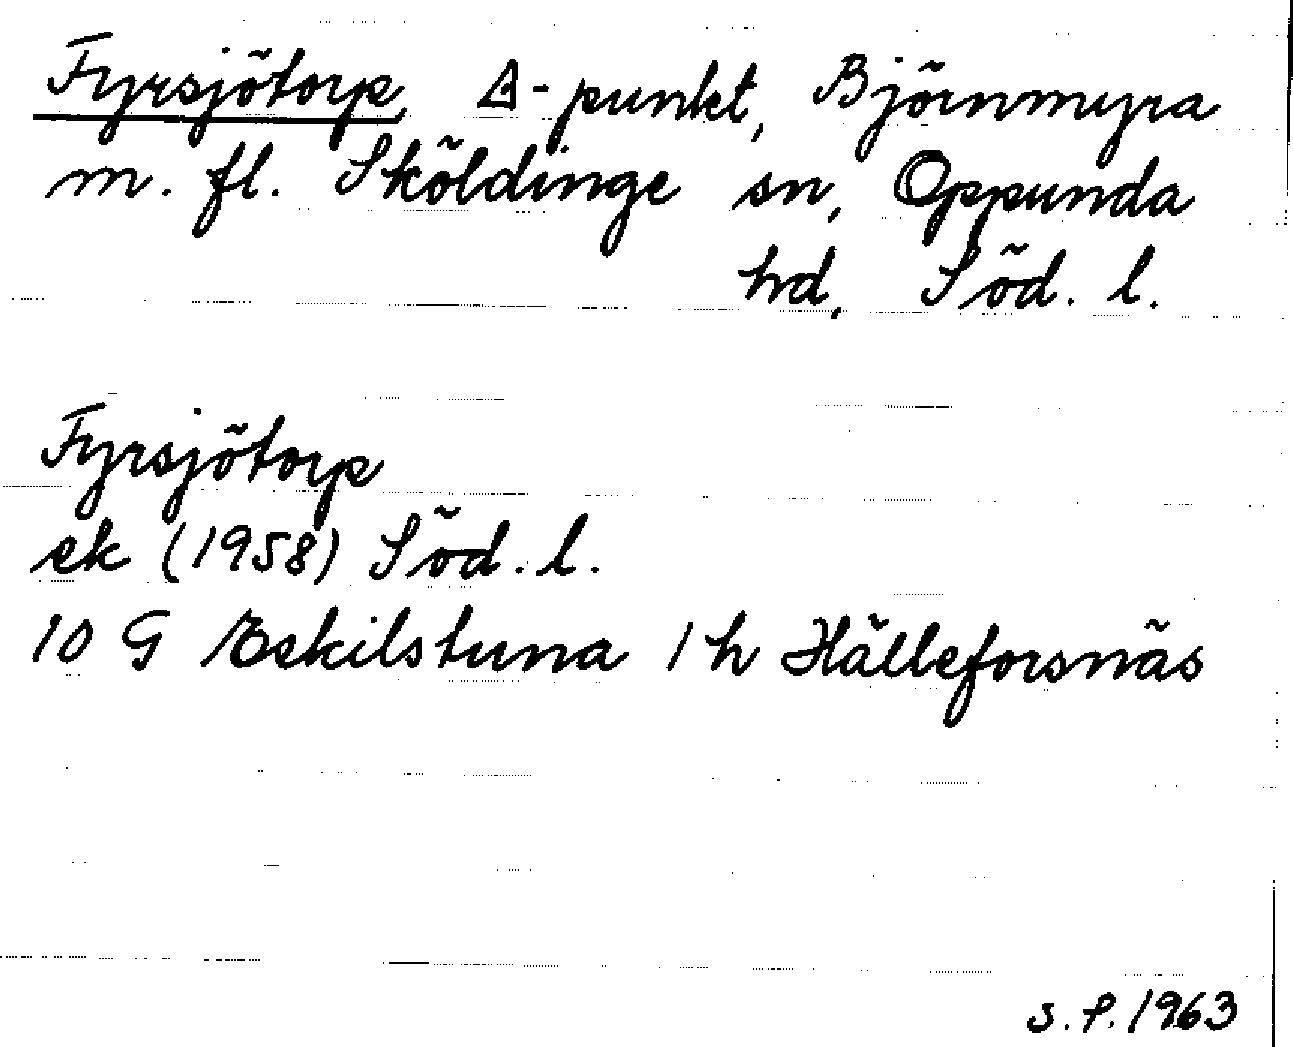 Fyrsjötorp, Δ-punkt, Björnmyra
m. fl. Sköldinge sn, Oppunda
hd, Söd. l.
Fyrsjötorp
ek (1958) Söd. l.
10 G Eskilstuna 1 h Hälleforsnäs
s. P. 1963